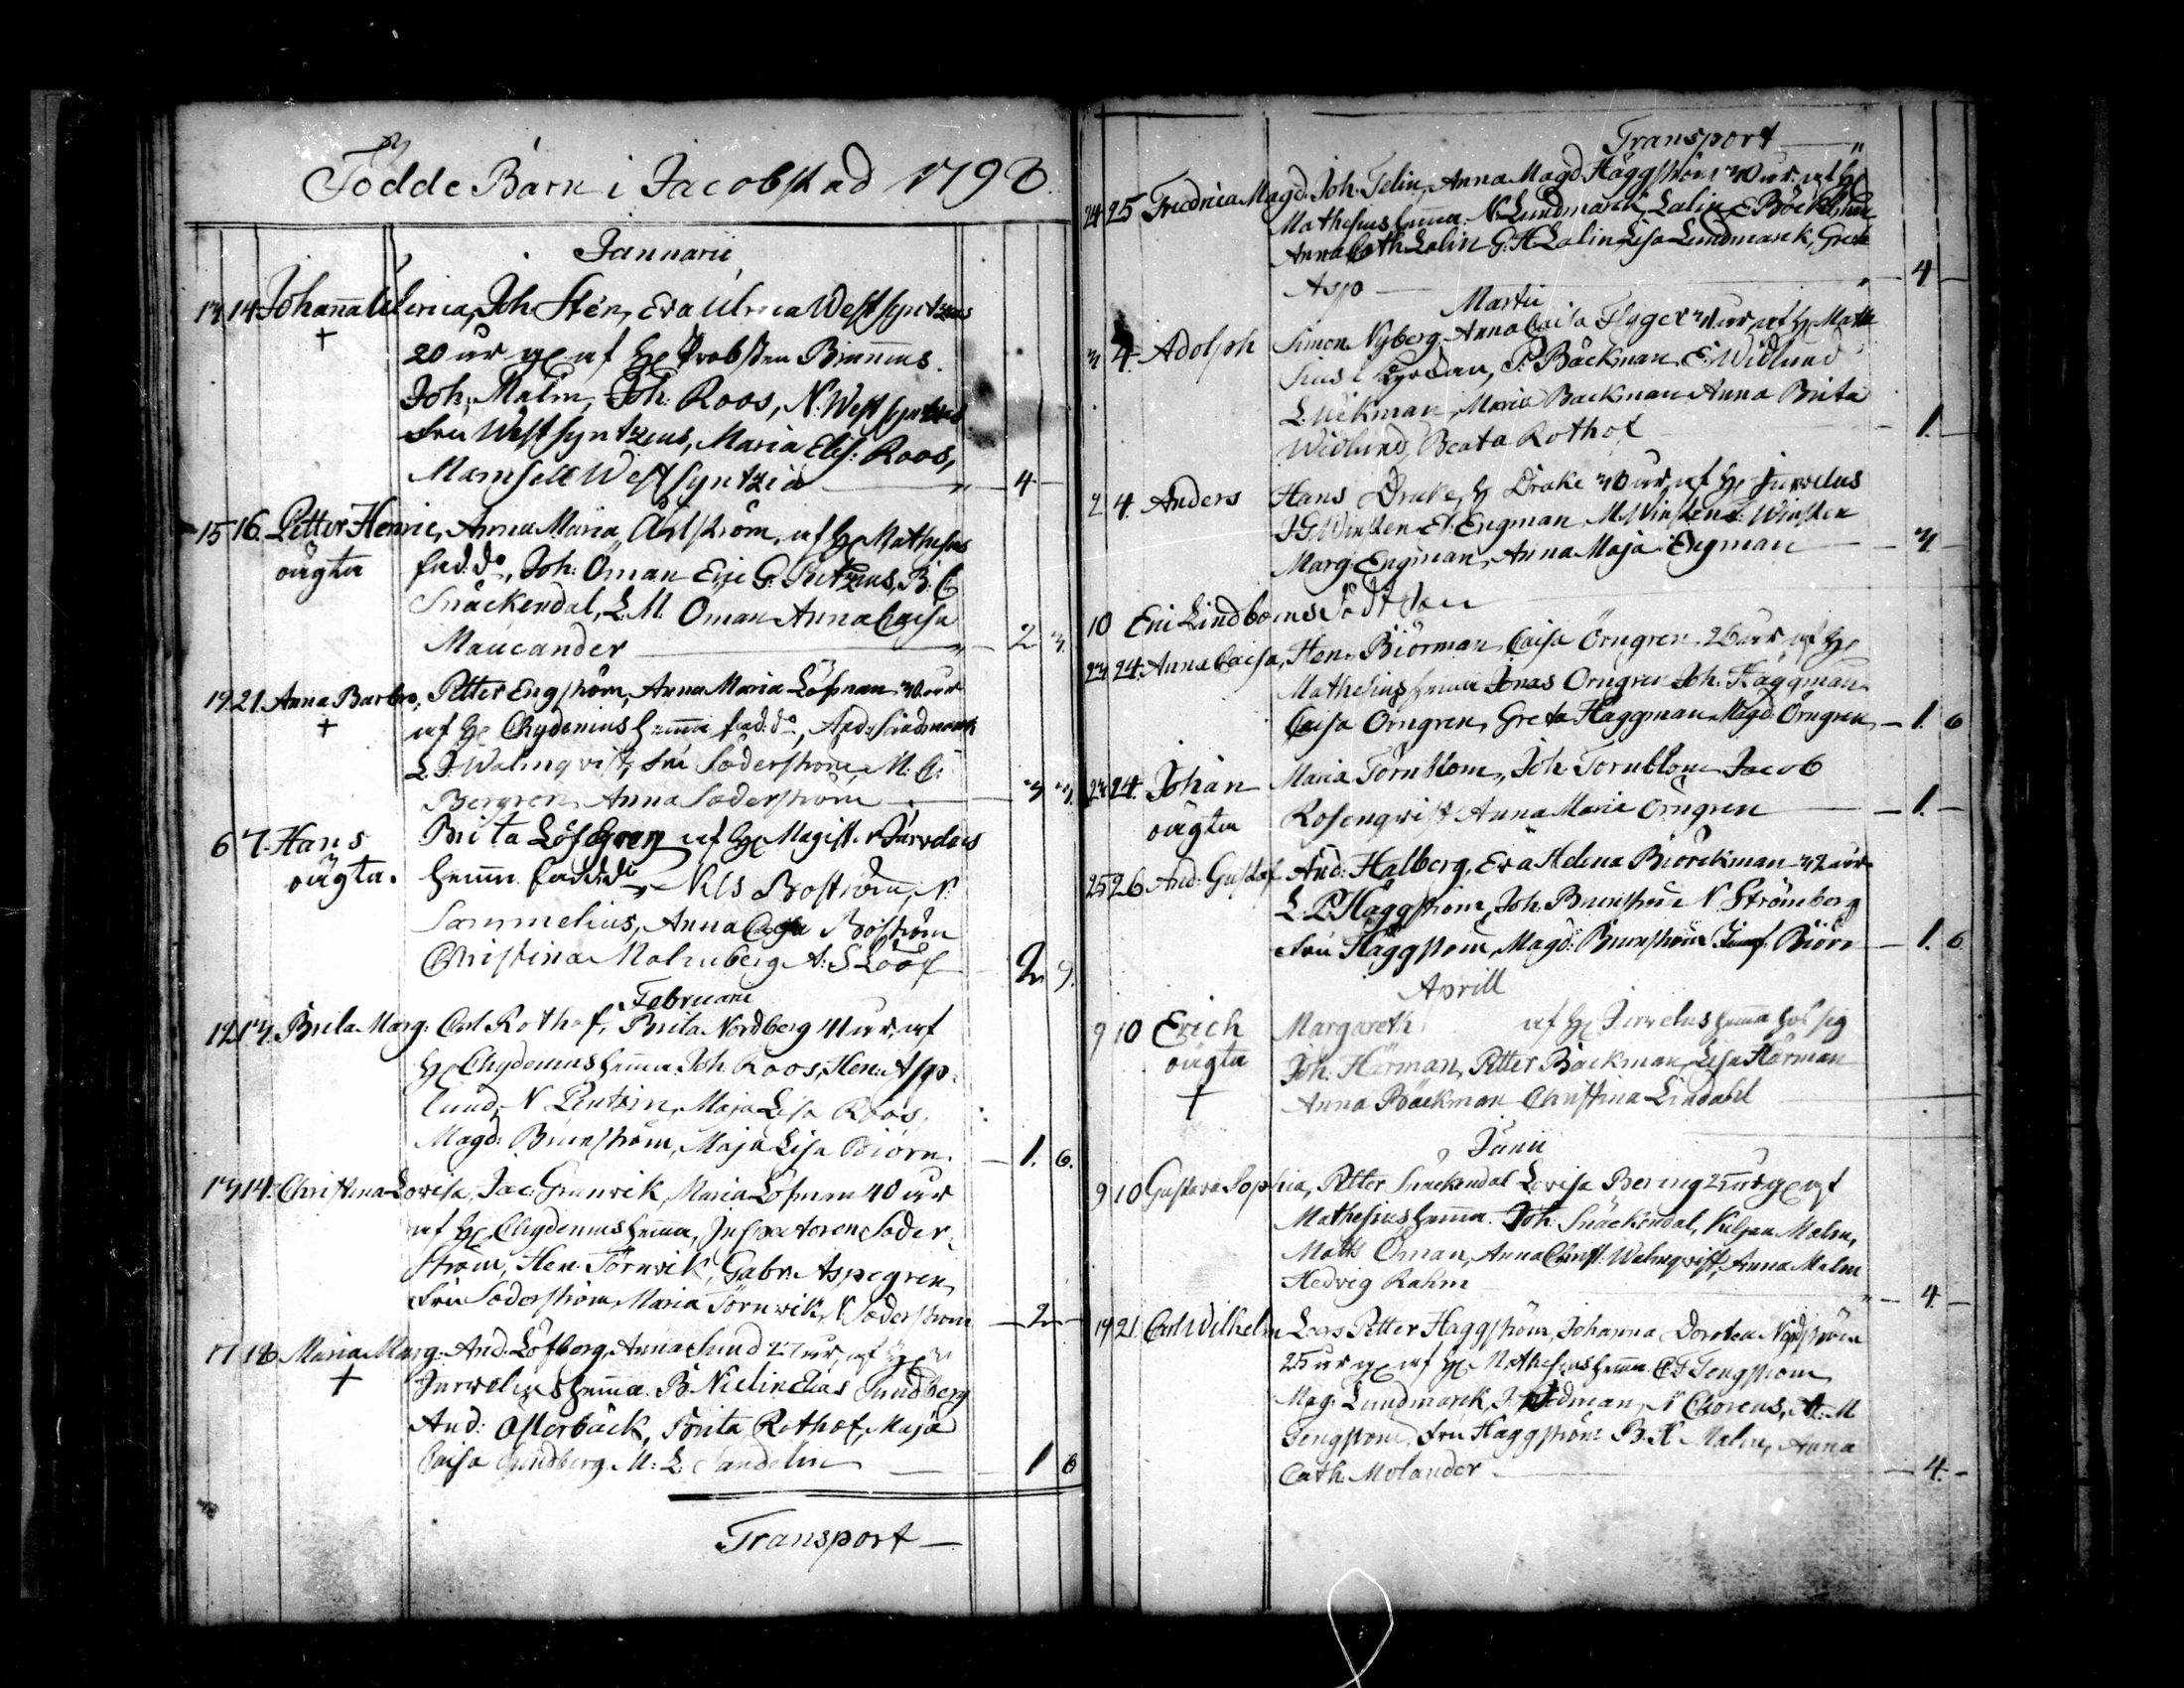 Födde Barn i Jacobstad 1798.
Januarii
13 14 Johanna Ulrica, Joh: Sten, Eva Ulrica Westsyntzius
† 20 år gl af Hr Probsten Brunnius.
Joh: Malm, Joh: Roos, N: Westsyntzius
Fru Westsyntzius, Maria Elis: Roos,
Mamsell Westsyntzia — " — 4 —
15 16. Petter Henric, Anna Maria Åhlström, af Hr Mathesius
oägta fad:do, Joh: Öman G: B: C
Snäckendal, L. M. Öman Anna Caisa
Maucander — " — 2 3.
19. 21. Anna Barbro, Petter Engström, Anna Maria Löfman 30 år
† af Hr Chydenius hemma fad:do, And: Lindmarck
L. J. Walmqvist, Fru Söderström, M: C:
Bergren, Anna Söderström — 3 3.
6 7. Hans Brita Löfgren af Hr Magist. Jurvelius
oägta. hemma fad:do, Nils Boström, N:
Sammelius, Anna Caisa Boström
Christina Malmberg A: S Lööf — 2 9.
Februarii
12 13. Brita Marg: Carl Rothof, Brita Nordberg 41 år, af
Hr Chydenius hemma. Joh. Roos, Hen: Asp-
lund, N Pentzin, Maja Lisa Roos,
Magd: Brunström, Maja Lisa Biörn. — 1. 6.
13 14. Christina Lovisa, Jac: Granvik, Maria Löfman 40 år
af Hr Chydenius hemma, Inspectoren Söder-
ström, Hen: Törnvik, Gabr: Aspegren,
Fru Söderström, Maria Törnvik, N Söderström — 2 —
17 18 Maria Marg: And. Löfberg, Anna Lund 27 år, af Hr
† Jurvelius hemma. B. Nielin Elias Sundberg
And: Österbäck, Brita Rothof, Maja
Caisa Sundberg. M: L. Sandelin — 1 6
Transport —
Transport — "
24 25 Fredrica Magd: Joh: Telin, Anna Magd Häggström 30 år. af Hr
Mathesius hemma. N: Lundmarck, Lalin, E Böckelman
Anna Cath Lalin G: H Lalin Lisa Lundmarck, Greta
Asp — " — 4 —
Martii
3 4. Adolph Simon Nyberg Anna Caisa Flyger 31 år, af Hr Mathe
sius i Kyrckan, P. Bäckman E: Widlund
L. Wickman, Maria Backman Anna Brita
Widlund, Beata Rothof — 1. —
2 4. Anders Hans Drake, H Drake 30 år, af Hr Jurvelius
J. G. Winsten E: Engman M. Winsten L: Winsten
Marg: Engman, Anna Maja Engman — 3. —
10 Eric Lindboms
23 24. Anna Caisa, Hen: Biörman Caisa Örngren 26 år af Hr
Mathesius hemma Jonas Örngren Joh. Häggman
Caisa Örngren, Greta Häggman Magd: Örngren, — 1. 6
23 24. Johan Maria Törnblom, Joh Törnblom Jacob
oägta Rosenqvist Anna Maria Örngren — 1. —
25 26 And: Gustaf And: Halberg, Eva Helena Biörckman 32 år
L. P. Häggström, Joh. Brunström N. Strömberg
Fru Häggström, Magd: Brunström Biörn — 1. 6
Aprill
9 10 Erich Margareth af Hr Jurvelius hemma hos sig
oägta Joh. Härman, Petter Bäckman, Lisa Härman
† Anna Bäckman Christina Lindahl
Junii
9 10 Gustava Sophia, Petter Snäckendal Lovisa Bering 25 år gl af
Mathesius hemma. Joh: Snäckendal, Kiljan Malm,
Matts Öman, Anna Christ: Walmqvist, Anna Malm
Hedvig Rahm — " — 4. —
19 21. Carl Wilhelm Lars Petter Häggström, Johanna Dorotea Nordström
25 år gl af Hr Mathesius hemma. C. F Tengström
Mag: Lundmarck, J: Wedman, N Choreus, A. M
Tengström. Fru Häggström B. H. Malm, Anna
Cath: Molander. — 4. —